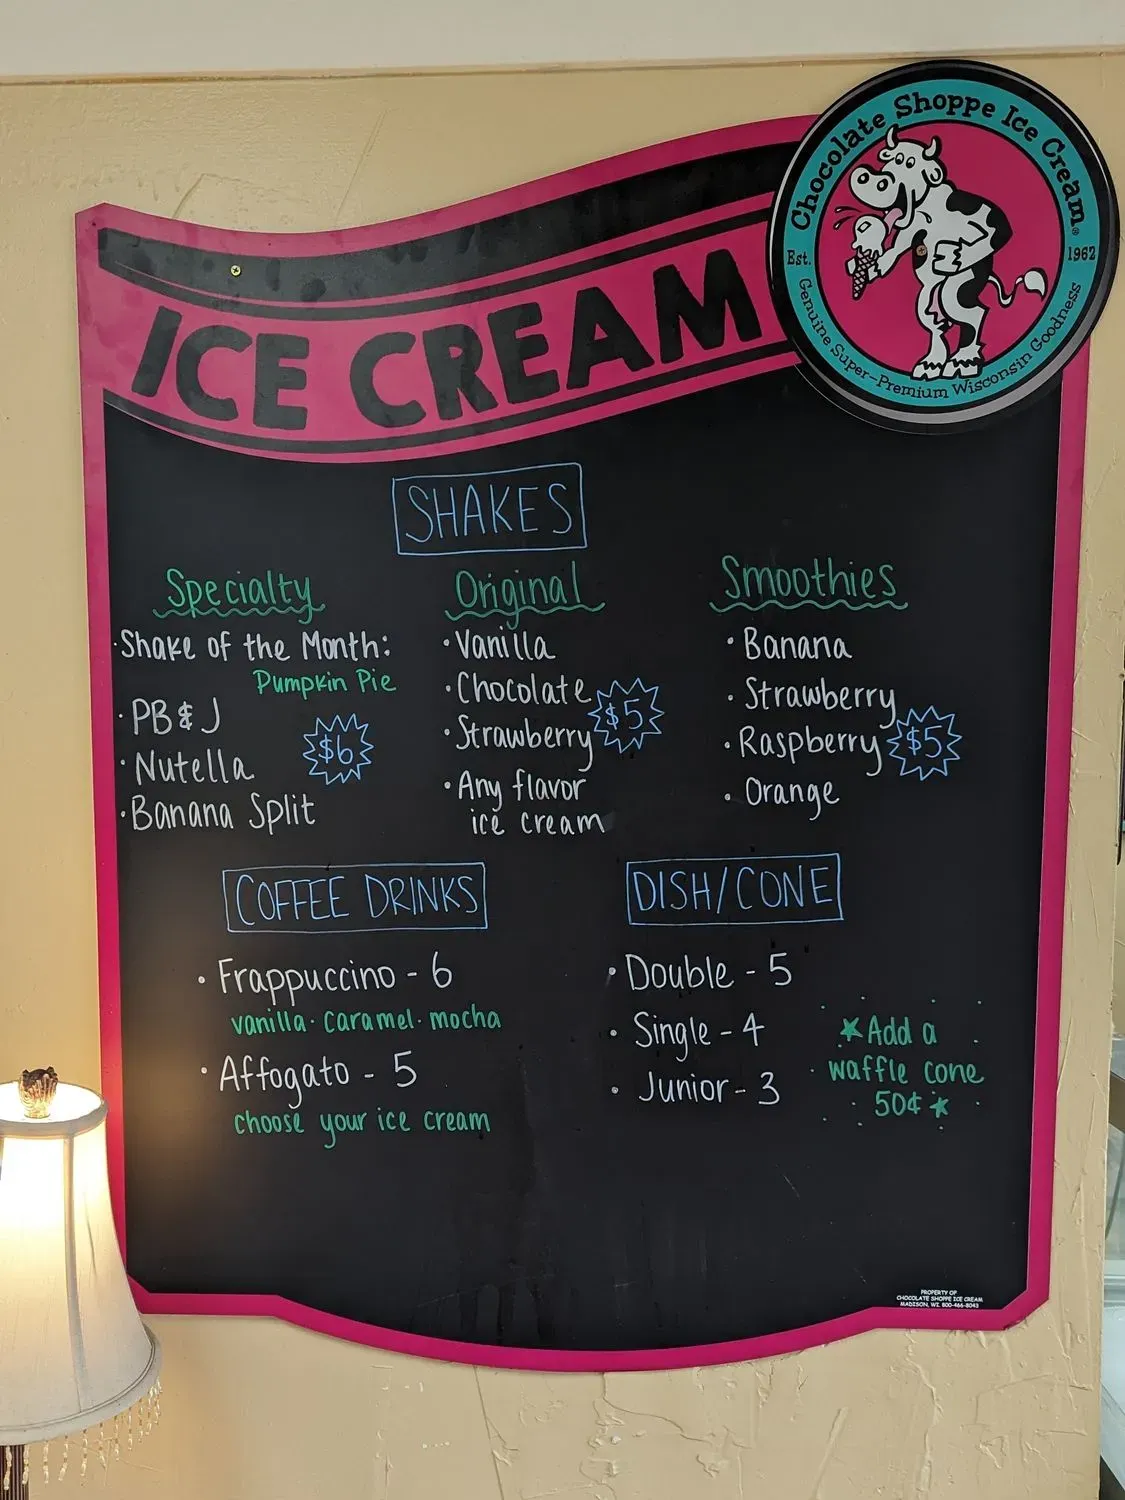 Chocolate Shoppe Ice Cream®
Est. 1962
Genuine Super-Premium Wisconsin Goodness
ICE CREAM
SHAKES
Specialty
·Shake of the Month:
Pumpkin Pie
·PB&J
·Nutella
·Banana Split
$6
Original
·Vanilla
·Chocolate
·Strawberry
·Any flavor
ice cream
$5
Smoothies
·Banana
·Strawberry
·Raspberry
·Orange
$5
COFFEE DRINKS
·Frappuccino - 6
vanilla·caramel·mocha
·Affogato - 5
choose your ice cream
DISH/CONE
·Double - 5
·Single - 4
·Junior - 3
★Add a
waffle cone
50¢★
PROPERTY OF
CHOCOLATE SHOPPE ICE CREAM
MADISON, WI. 800-466-8043